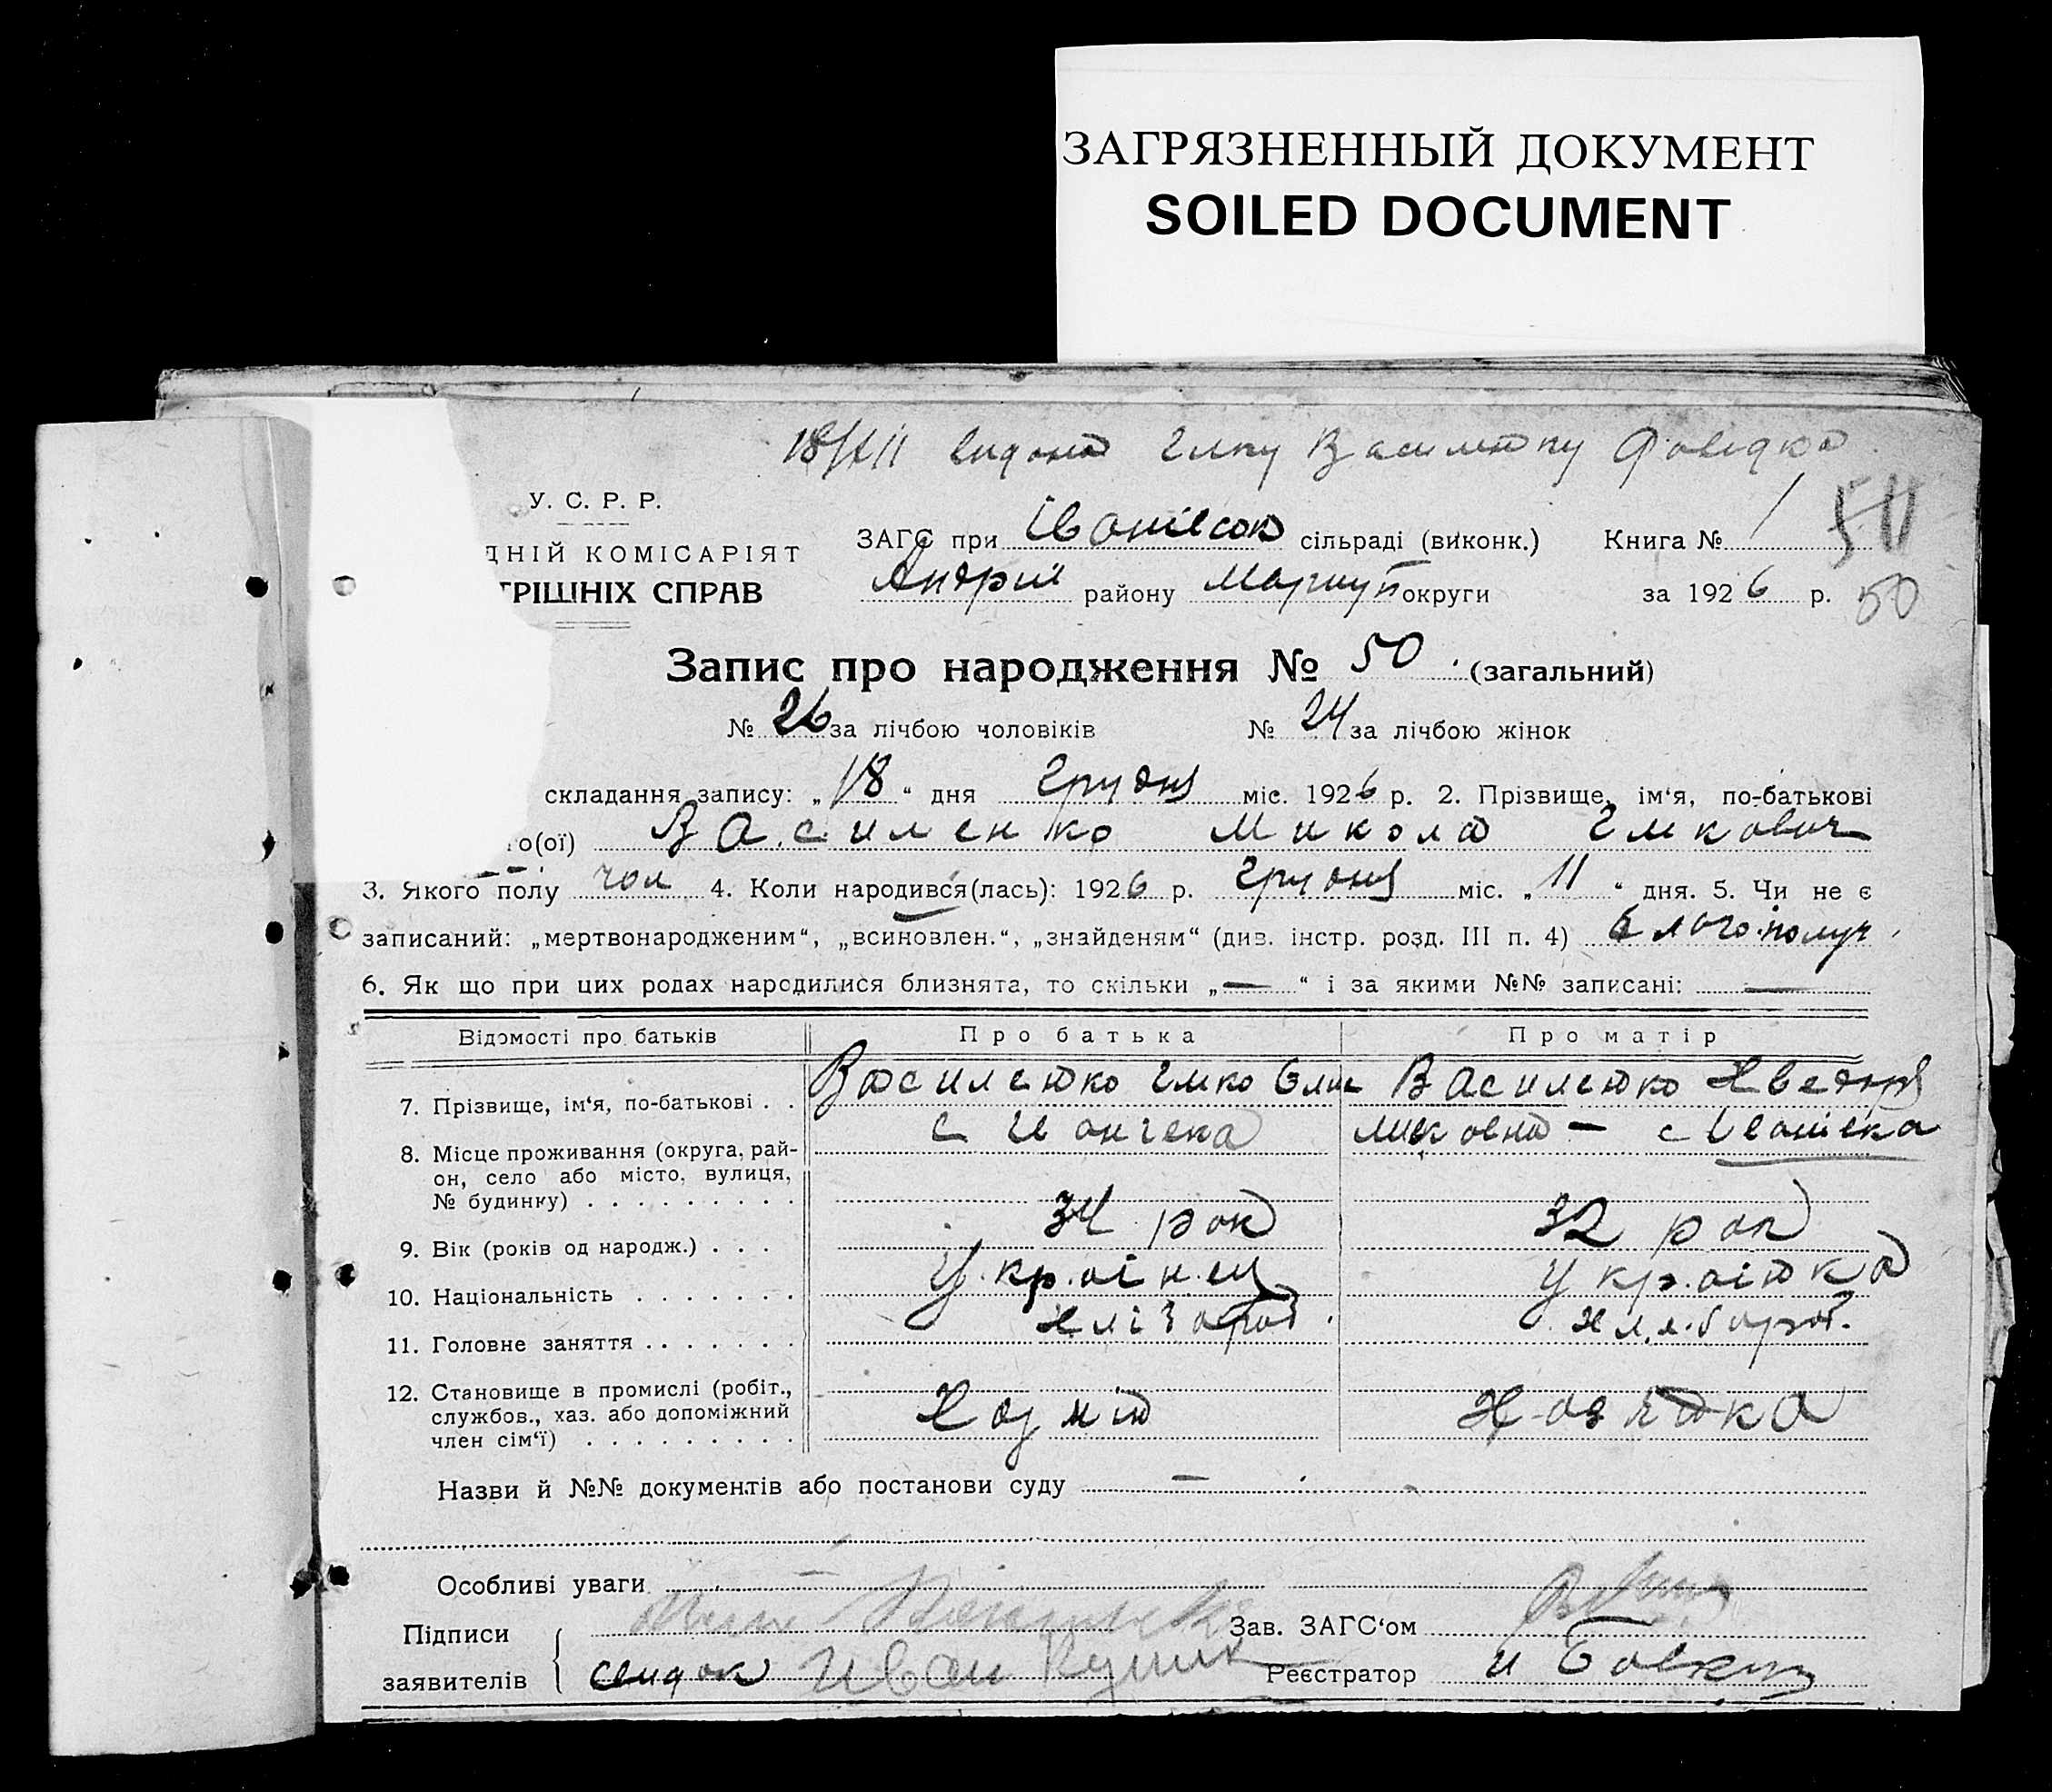 ЗАГРЯЗНЕННЫЙ ДОКУМЕНТ
SOILED DOCUMENT
18/XII видана
У. С. Р. Р.
ДНІЙ КОМІСАРІЯТ
ТРІШНІХ СПРАВ
ЗАГС при Іванівсок сільраді (виконк.) Книга № 1
Андріи району Мариуп округи за 1926 р. 50
Запис про народження № 50. (загальний)
№ 26 за лічбою чоловіків № 24 за лічбою жінок
складання запису: „18“ дня Грудня міс. 1926 р. 2. Прізвище, ім‘я, по-батькові
го(ої) Василенко Микола
3. Якого полу чол 4. Коли народився(лась): 1926 р. Грудня міс. „11“ дня. 5. Чи не є
записаний: „мертвонародженим“, „всиновлен.“, „знайденям“ (див. інстр. розд. III п. 4)
6. Як що при цих родах народилися близнята, то скільки „—“ і за якими №№ записані: —
Відомості про батьків Про батька Про матір
7. Прізвище, ім‘я, по-батькові . . Василенко Василенко
8. Місце проживання (округа, рай-
он, село або місто, вулиця,
№ будинку) . . . . . . . . .
9. Вік (років од народж.) . . . 34 рок 32 рок
10. Національність . . . . . . . Українец Українка
11. Головне заняття . . . . . . .
12. Становище в промислі (робіт.,
службов., хаз. або допоміжний
член сім‘ї) . . . . . . . . . Хозяйка
Назви й №№ документів або постанови суду —
Особливі уваги —
Підписи Зав. ЗАГС‘ом
заявителів свидок Иван Реєстратор